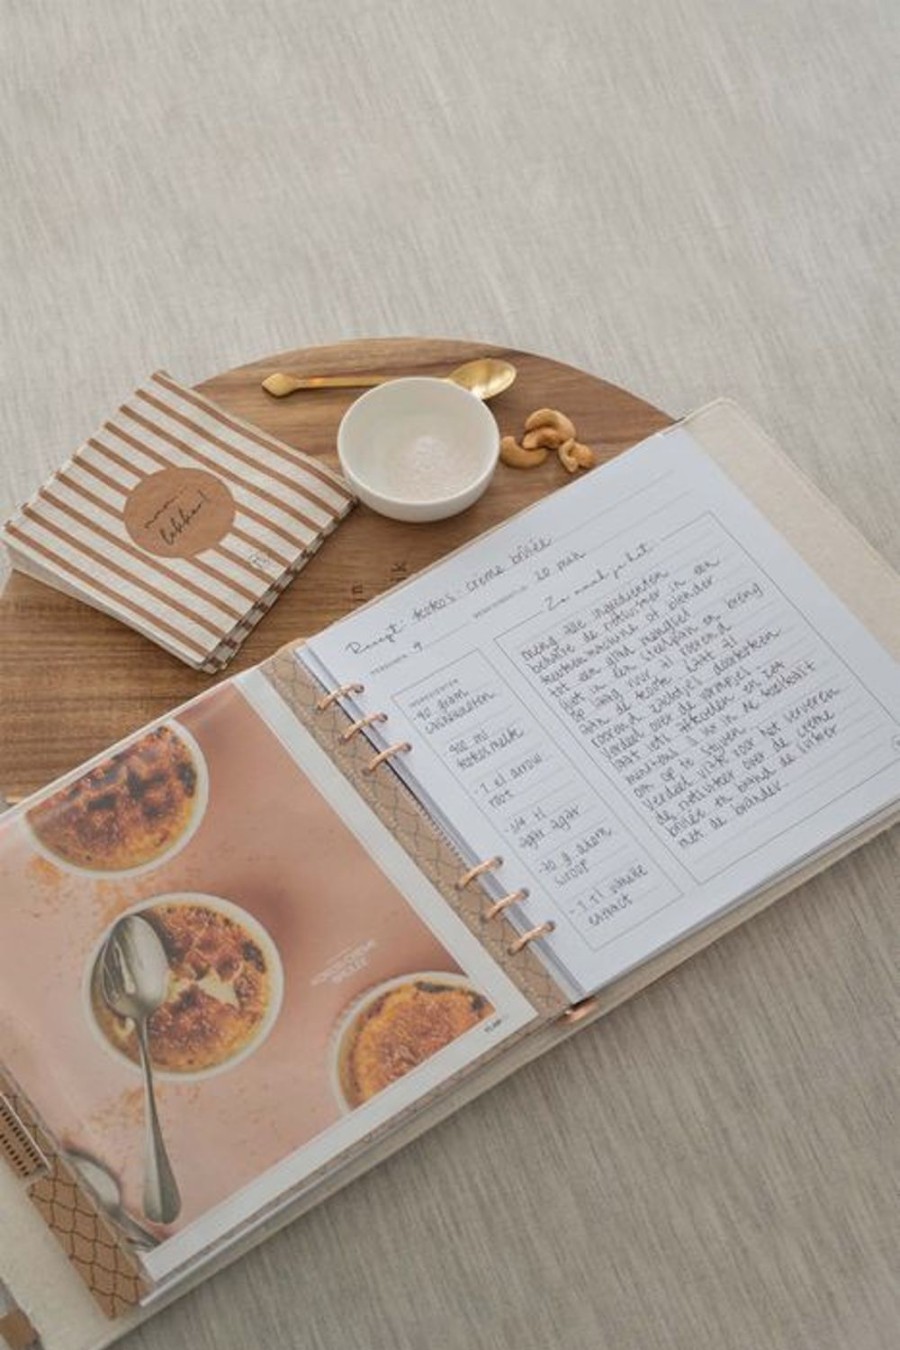 mm...
lekker!
Recept: kokos creme brûlée
PERSONEN 4
20 min
Zo maak je het:
INGREDIËNTEN
- 40 gram
cashewnoten
400 ml
kokosmelk
- 1 el arrow
root
- 1/4 tl
agar agar
siroop
- 1 tl vanille
extract
meng alle ingrediënten
behalve de rietsuiker in een
keukenmachine of blender
tot een glad mengsel
giet in een steelpan en breng
op laag vuur al roerend
aan de kook. Laat al
roerend zachtjes doorkoken
verdeel over de vormpjes
laat iets afkoelen en zet
minstens 1 uur in de koelkast
om op te stijven.
Verdeel vlak voor het serveren
de rietsuiker over de creme
brûlée en brand de suiker
met de brander.